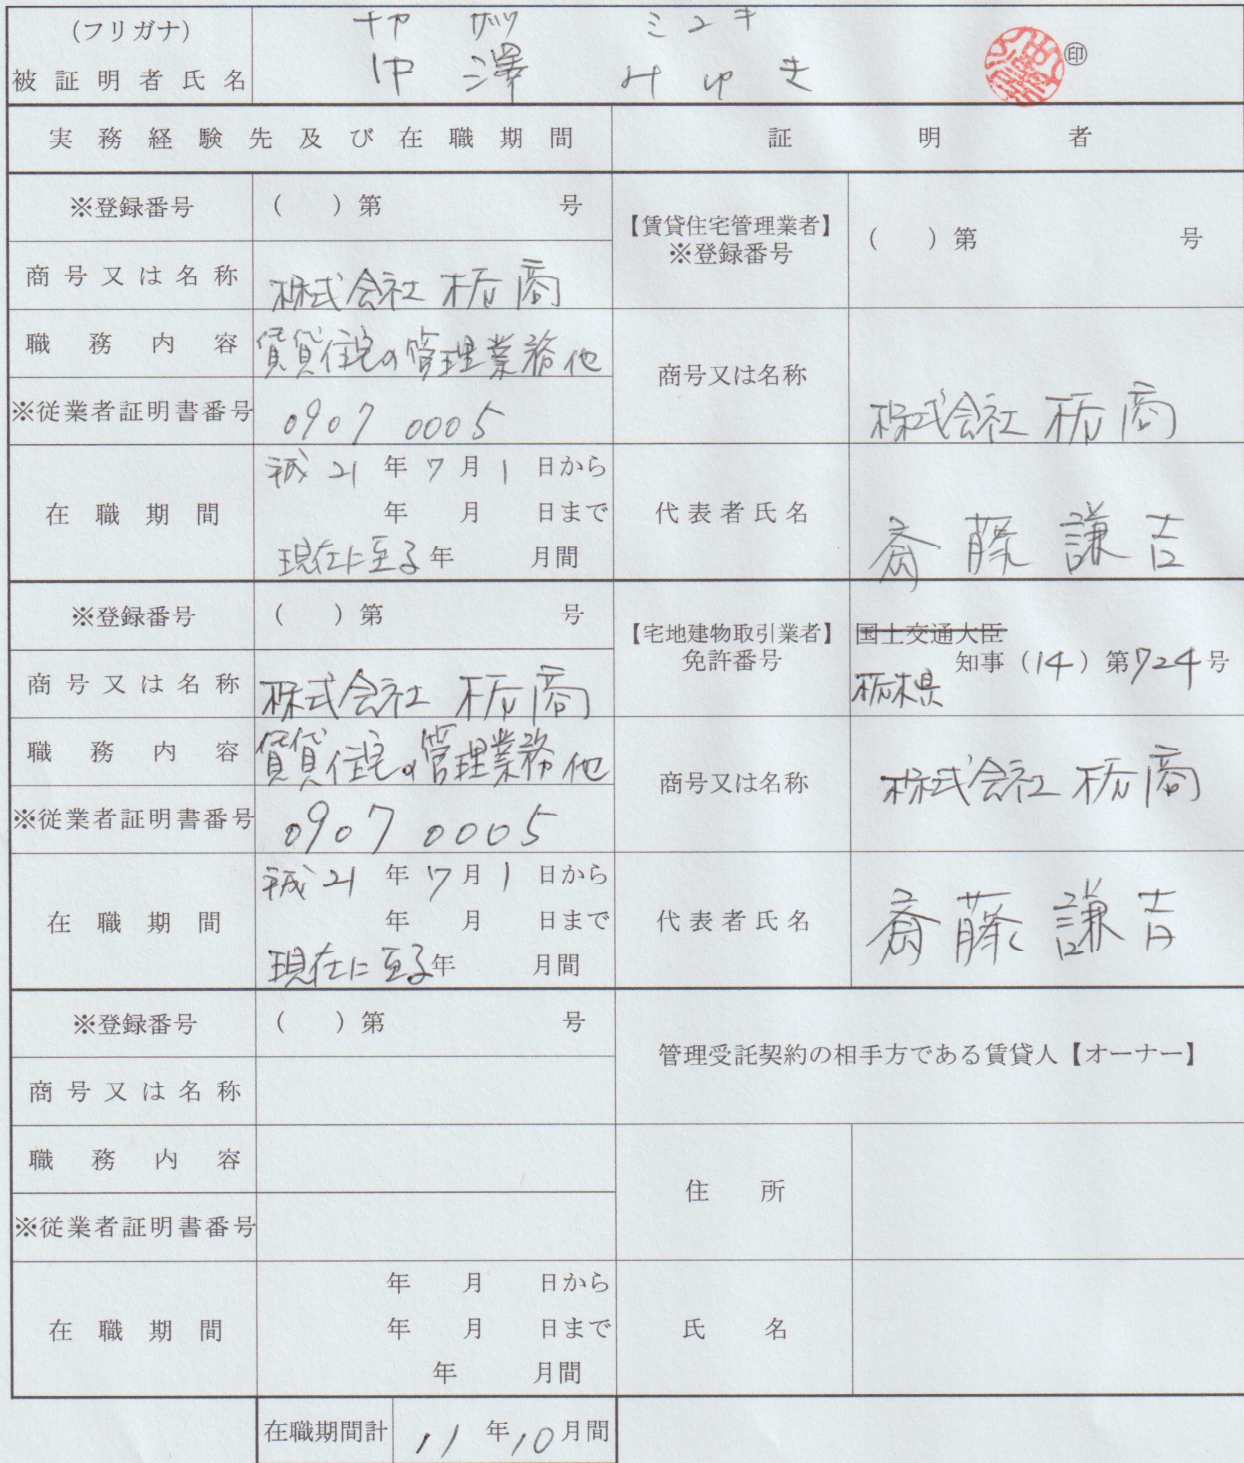 (フリガナ) ナカ ザワ ミユキ
被証明者氏名 中澤 みゆき ㊞
実務経験先及び在職期間 証明者
※登録番号 ( )第 号
商号又は名称 株式会社 栃商
職務内容 賃貸住宅の管理業務他
※従業者証明書番号 0907 0005
在職期間 平成 21 年 7 月 1 日から
年 月 日まで
現在に至る 年 月間
【賃貸住宅管理業者】
※登録番号 ( )第 号
商号又は名称 株式会社 栃商
代表者氏名 斎藤謙吉
※登録番号 ( )第 号
商号又は名称 株式会社 栃商
職務内容 賃貸住宅の管理業務他
※従業者証明書番号 0907 0005
在職期間 平成 21 年 7 月 1 日から
年 月 日まで
現在に至る 年 月間
【宅地建物取引業者】 国土交通大臣
免許番号 栃木県 知事 (14) 第724号
商号又は名称 株式会社 栃商
代表者氏名 斎藤謙吉
※登録番号 ( )第 号
商号又は名称
職務内容
※従業者証明書番号
在職期間 年 月 日から
年 月 日まで
年 月間
管理受託契約の相手方である賃貸人【オーナー】
住所
氏名
在職期間計 11 年 10 月間